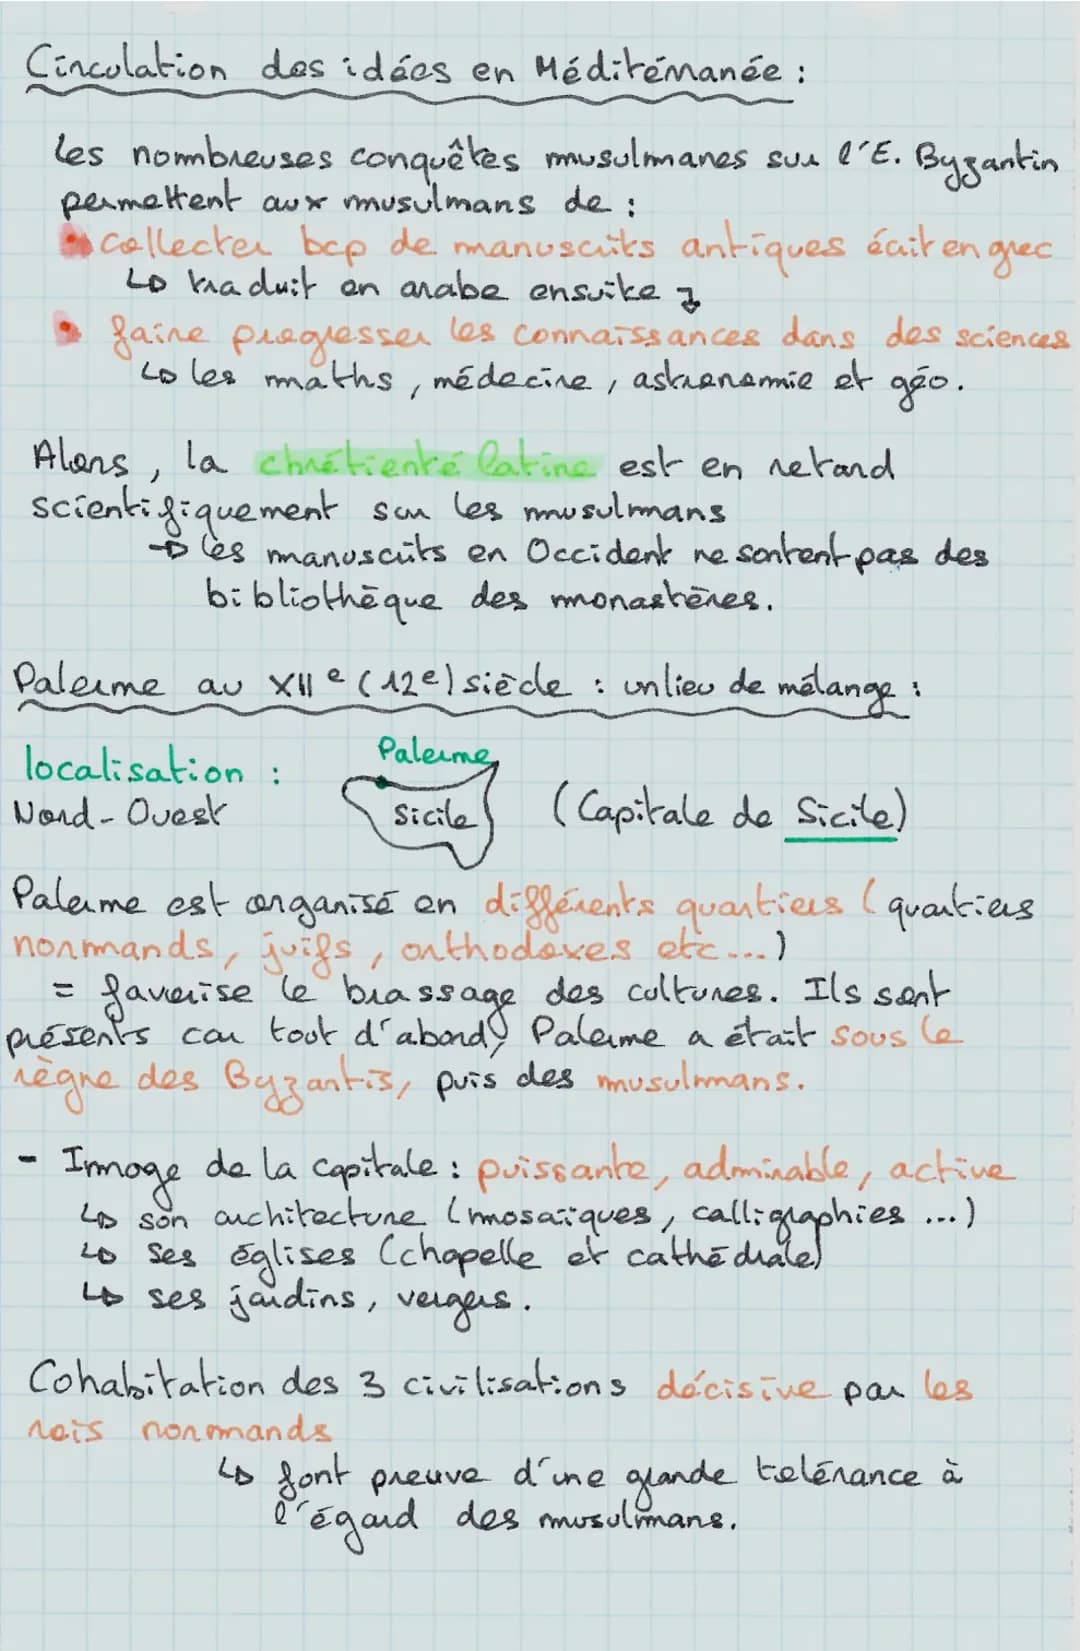 Circulation des idées en Méditérranée :
Les nombreuses conquêtes musulmanes sur l'E. Byzantin
permettent aux musulmans de :
Collecter bcp de manuscrits antiques écrit en grec
↳ traduit en arabe ensuite
faire progresser les connaissances dans des sciences
↳ les maths, médecine, astronomie et géo.
Alors, la chrétienté latine est en retard
scientifiquement sur les musulmans
→ les manuscrits en Occident ne sortent pas des
bibliothèque des monastères.
Palerme au XIIe (12e) siècle : un lieu de mélange :
localisation :
Nord-Ouest
Palerme
Sicile
(Capitale de Sicile)
Palerme est organisé en différents quartiers (quartiers
normands, juifs, orthodoxes etc...)
= favorise le brassage des cultures. Ils sont
présents car tout d'abord, Palerme a était sous le
règne des Byzantis, puis des musulmans.
- Image de la capitale : puissante, admirable, active
↳ son architecture (mosaïques, calligraphies ...)
↳ Ses églises (chapelle et cathédrale)
↳ ses jardins, vergers.
Cohabitation des 3 civilisations décisive par les
rois normands
↳ font preuve d'une grande tolérance à
l'égard des musulmans.